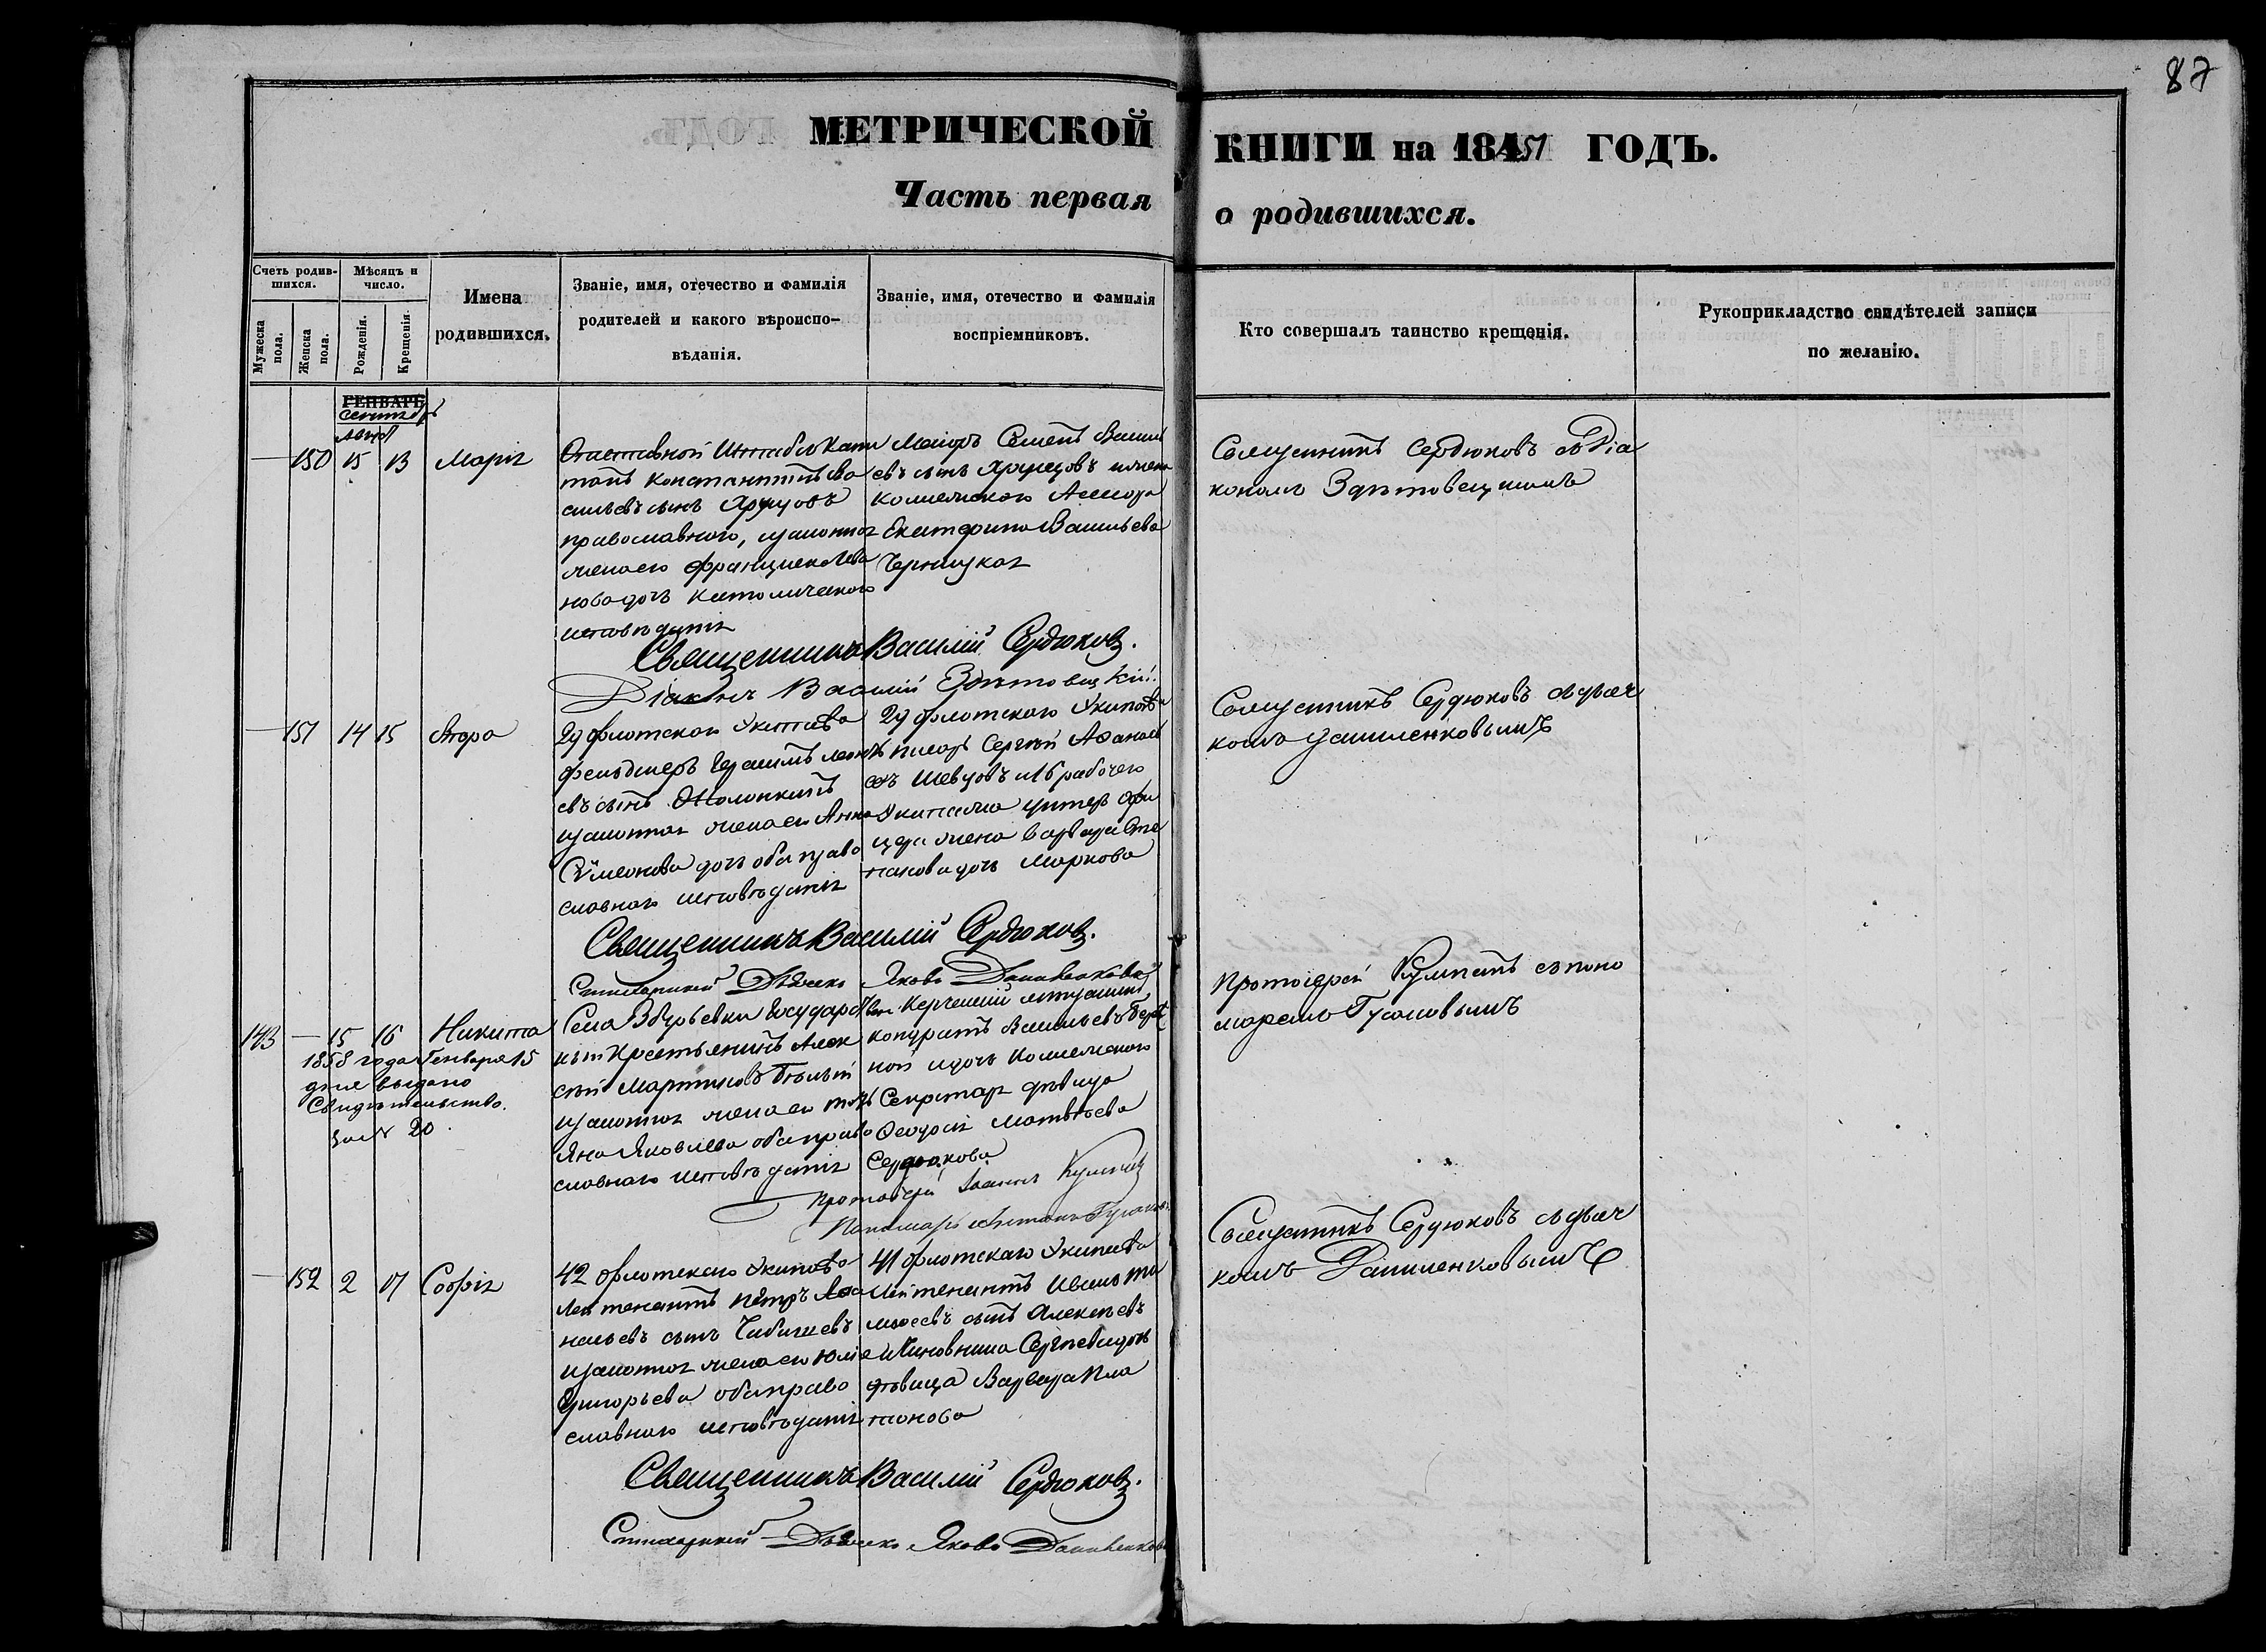 87
МЕТРИЧЕСКОЙ
КНИГИ на 1851 ГОДЪ.
Часть первая
о родившихся.
Счетъ родив-
шихся.
Мѣсяцъ и
число.
Мужеска
пола.
Женска
пола.
Рожденія.
Крещенія.
Имена
родившихся.
Званіе, имя, отечество и фамилія
родителей и какого вѣроиспо-
вѣданія.
Званіе, имя, отечество и фамилія
воспріемниковъ.
Кто совершалъ таинство крещенія.
Рукоприкладство свидѣтелей записи
по желанію.
ГЕНВАРЬ
Сентябрь
150 15 13 Марія
Отставной Штабсъ Капи
танъ Константинъ Ва
сильевъ сынъ
православнаго, законная
жена его Франциска
нова дочь Католическаго
исповѣданія
Маіоръ Семенъ Васильевъ
евъ сынъ
Коллежскаго Асессора
Екатерина Васильева
Священникъ Сердюковъ съ Діа
кономъ
Священникъ Василій Сердюковъ.
Діаконъ Василій
151 14 15
29 флотскаго Экипажа
фельдшеръ Герасимъ
евъ сынъ
законная жена его Анна
Сѵмеонова дочь оба право
славнаго исповѣданія
29 флотскаго Экипажа
писарь Сергѣй Афанась
евъ Шевцовъ и 16 рабочаго
Экипажа унтеръ офи
цера жена Варвара Сте
панова дочь Маркова
Священникъ Сердюковъ съ дьяч
комъ Даниленковымъ
Священникъ Василій Сердюковъ.
Стихарный Дьячекъ Яковъ Даниленковъ
143 — 15 16 Никита
1858 года Генваря 15
дня выдано
Свидѣтельство.
за № 20.
Села Збурьевки Государствен
ный Крестьянинъ Алек
сѣй Мартиновъ
законная жена его Тать
яна Яковлева оба право
славнаго исповѣданія
Керченскій мѣщанинъ
Кондратъ Васильевъ
ной и дочь Коллежскаго
Секретаря дѣвица
Ѳеодосія Матвѣева
Сердюкова
Протоіерей съ поно
маремъ Гусаковымъ
Протоіерей Іоаннъ
Пономарь Антонъ Гусаковъ
152 2 17 Софія
42 флотскаго Экипажа
Лейтенантъ Петръ Афа
насьевъ сынъ
законная жена его Юлія
Григорьева оба право
славнаго исповѣданія
41 флотскаго Экипажа
Лейтенантъ Иванъ Ти
моѳеевъ сынъ Алексѣевъ
и Чиновника Сергѣева дочь
дѣвица Варвара Пла
тонова
Священникъ Сердюковъ съ дьяч
комъ Даниленковымъ
Священникъ Василій Сердюковъ.
Стихарный Дьячекъ Яковъ Даниленковъ